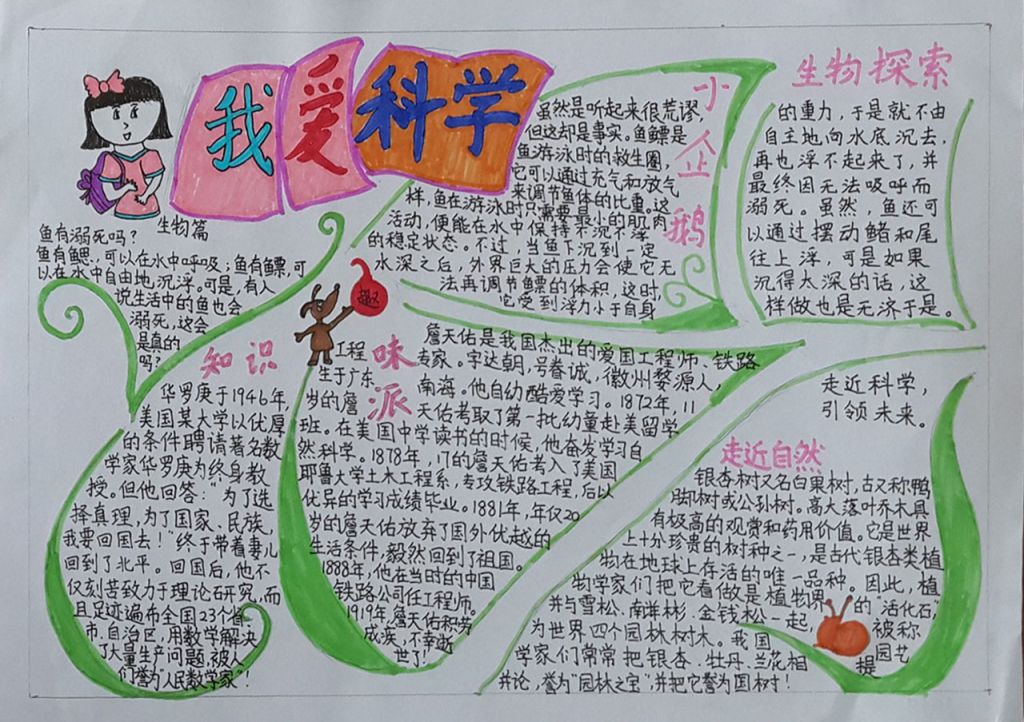 我爱科学
生物篇
鱼有溺死吗?
鱼有鳃,可以在水中呼吸;鱼有鳔,可
以在水中自由地沉浮。可是,有人
说生活中的鱼也会
溺死,这会
是真的
吗?
小企鹅
虽然是听起来很荒谬,
但这却是事实。鱼鳔是
鱼游泳时的救生圈,
它可以通过充气和放气
来调节鱼体的比重。这
样,鱼在游泳时只需要最小的肌肉
活动,便能在水中保持不沉不浮
的稳定状态。不过,当鱼下沉到一定
水深之后,外界巨大的压力会使它无
法再调节鱼鳔的体积,这时,
它受到浮力小于自身
生物探索
的重力,于是就不由
自主地向水底沉去,
再也浮不起来了,并
最终因无法吸呼而
溺死。虽然,鱼还可
以通过摆动鳍和尾
往上浮,可是如果
沉得太深的话,这
样做也是无济于是。
知识
华罗庚于1946年,
美国某大学以优厚
的条件聘请著名数
学家华罗庚为终身教
授。但他回答:“为了选
择真理,为了国家、民族,
我要回国去!”终于带着妻儿
回到了北平。回国后,他不
仅刻苦致力于理论石研究,而
且足迹遍布全国23个省
市、自治区,用数学解决
了大量生产问题,被人
们誉为“人民数学家”!
趣
味
派
工程
詹天佑是我国杰出的爱国工程师、铁路
专家。字达朝,号眷诚,徽州婺源人,
生于广东南海。他自幼酷爱学习。1872年,11
岁的詹天佑考取了第一批幼童赴美留学
班。在美国中学读书的时候,他奋发学习自
然科学。1878年,17的詹天佑考入了美国
耶鲁大学土木工程系,专攻铁路工程,后以
优异的学习成绩毕业。1881年,年仅20
岁的詹天佑放弃了国外优越的
生活条件,毅然回到了祖国。
1888年,他在当时的中国
铁路公司任工程师。
1919年,詹天佑积劳
成疾,不幸逝
世了!
走近科学,
引领未来。
走近自然
银杏树又名白果树,古又称鸭
脚树或公孙树。高大落叶乔木具
有极高的观赏和药用价值。它是世界
上十分珍贵的树种之一,是古代银杏类植
物在地球上存活的唯一品种。因此,植
物学家们把它看做是植物界的“活化石”,
并与雪松、南洋彬、金钱松一起,被称
为世界四个园林树木。我国园艺
学家们常常把银杏、牡丹、兰花相提
并论,誉为“园林之宝”,并把它誉为国树!